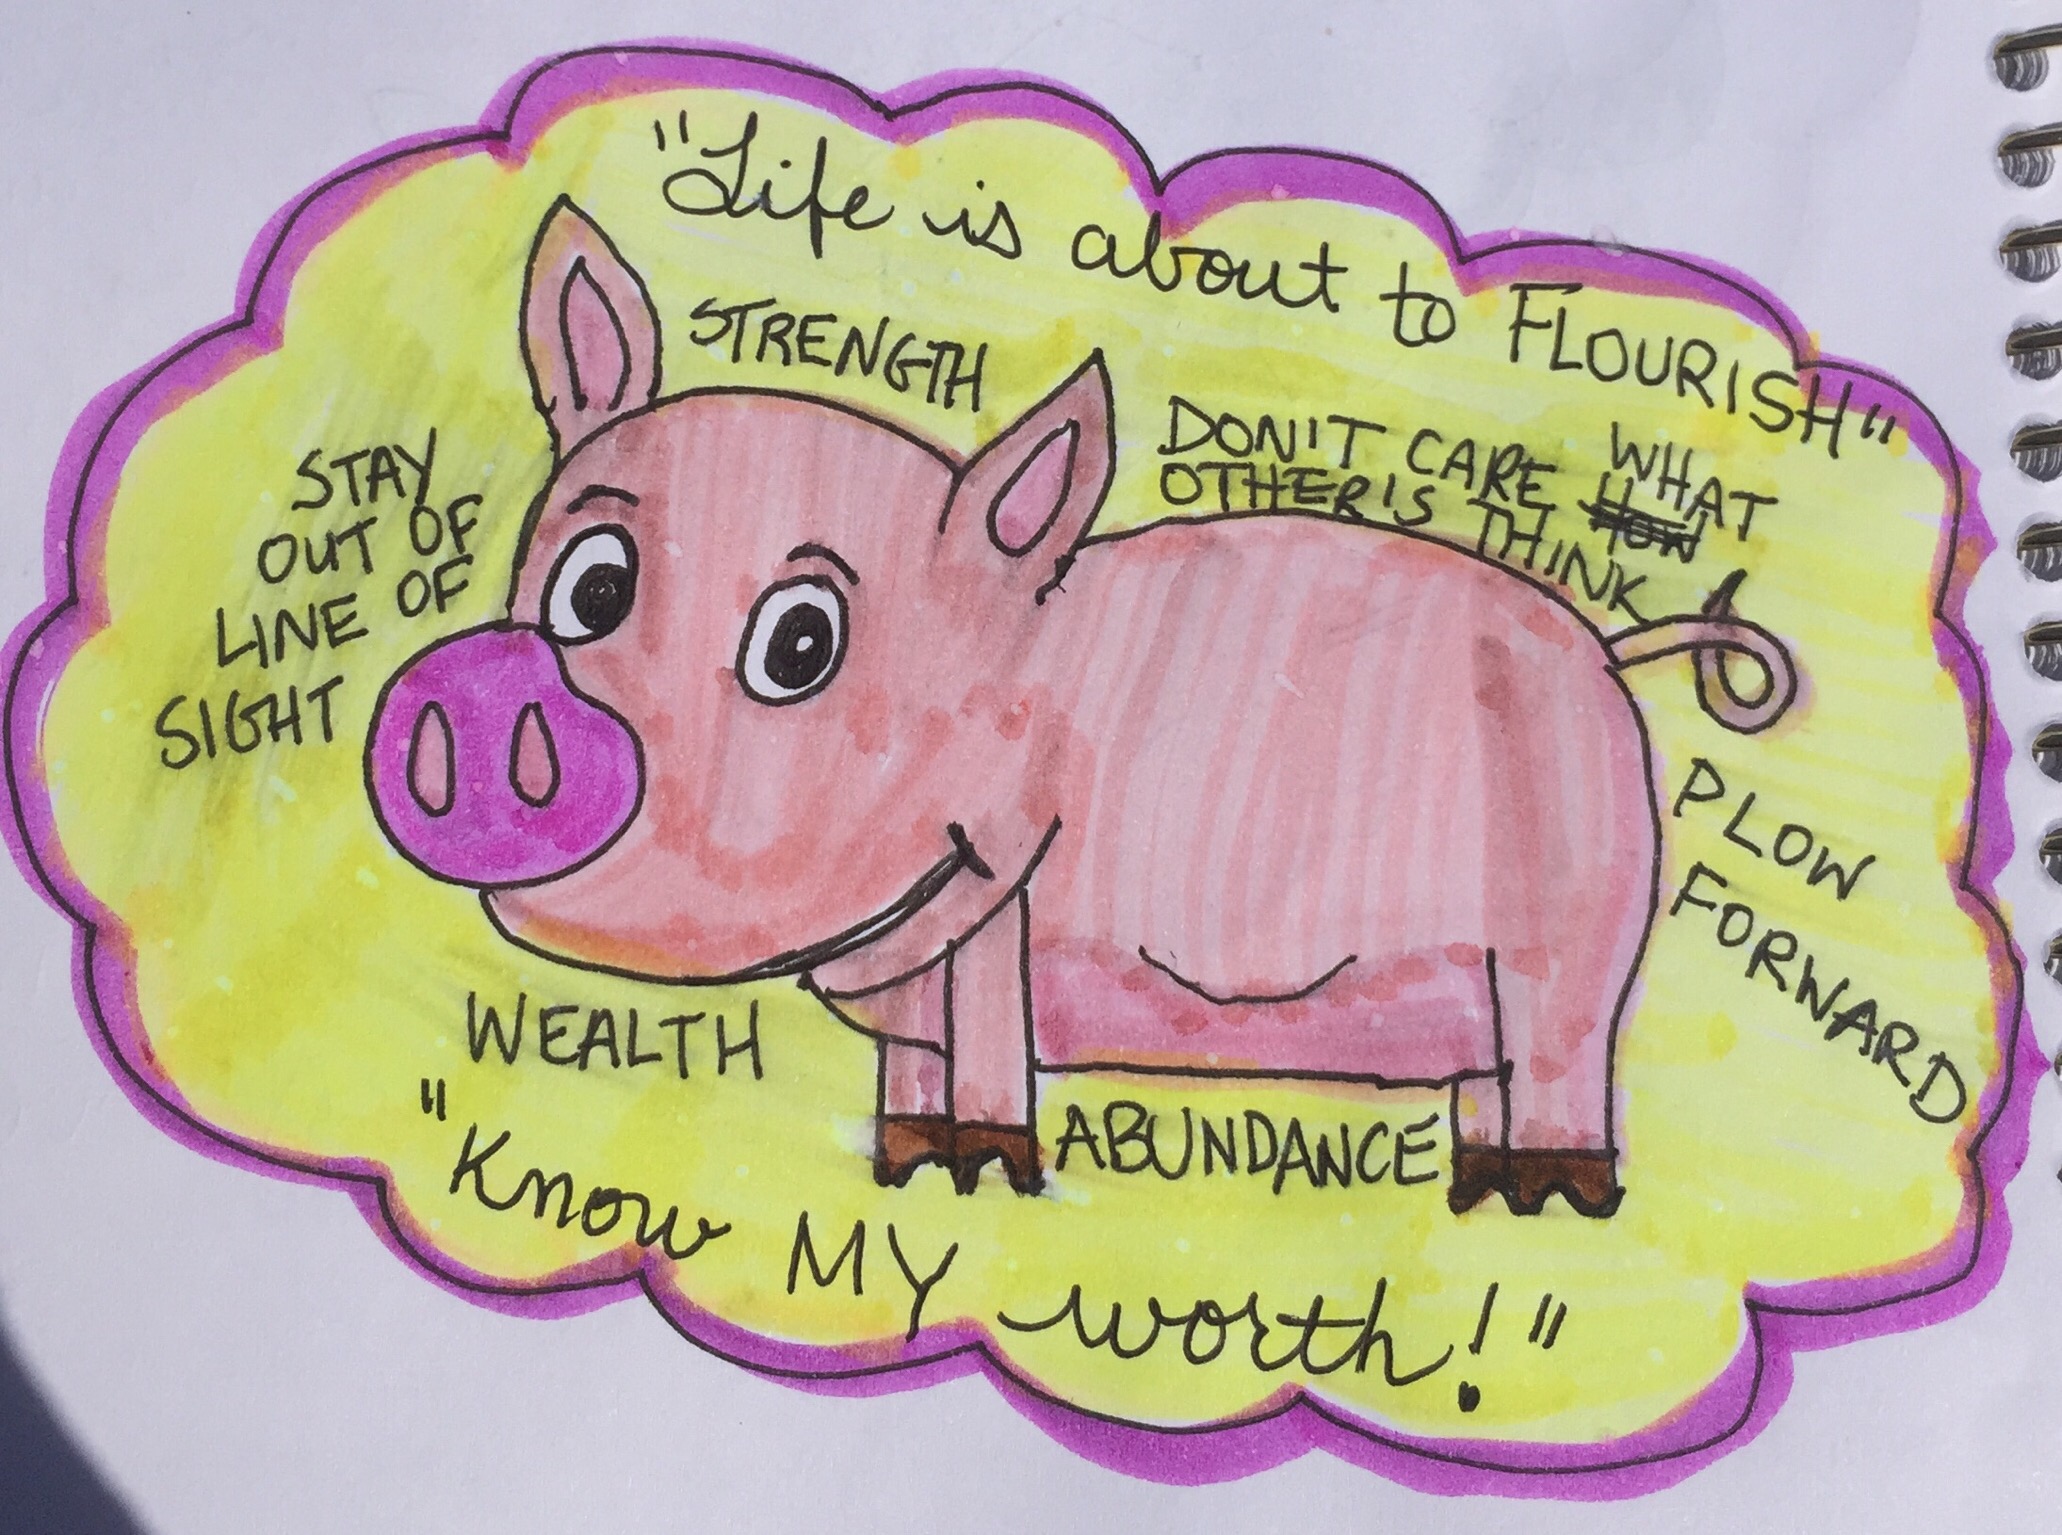 "Life is about to FLOURISH"
STRENGTH
DON'T CARE WHAT
OTHER'S THINK
STAY
OUT OF
LINE OF
SIGHT
PLOW
FORWARD
WEALTH
ABUNDANCE
"Know MY worth!"